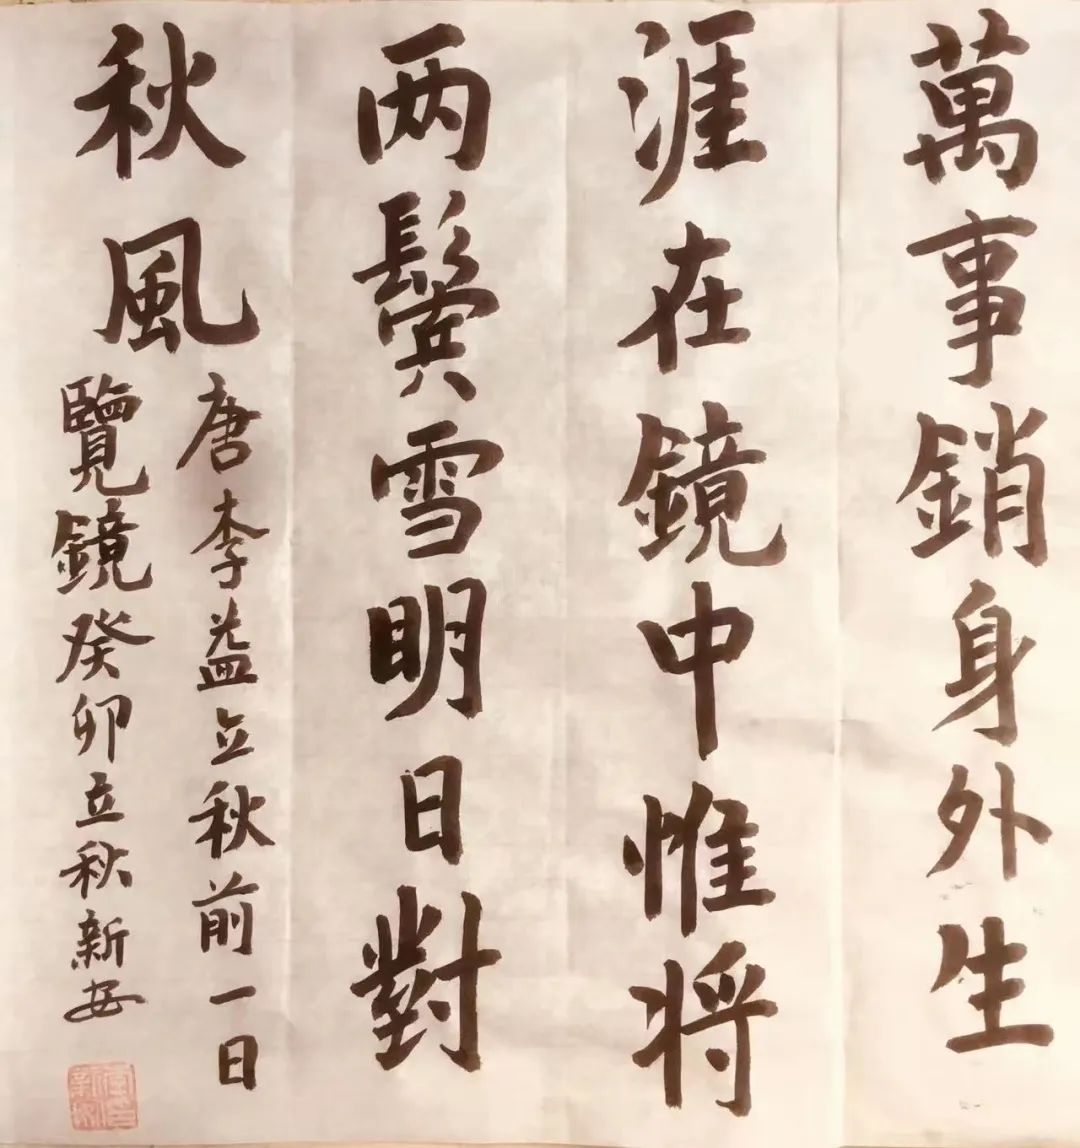 萬事銷身外生
涯在鏡中惟将
两鬢雪明日對
秋風
唐李益立秋前一日
覽鏡癸卯立秋新安